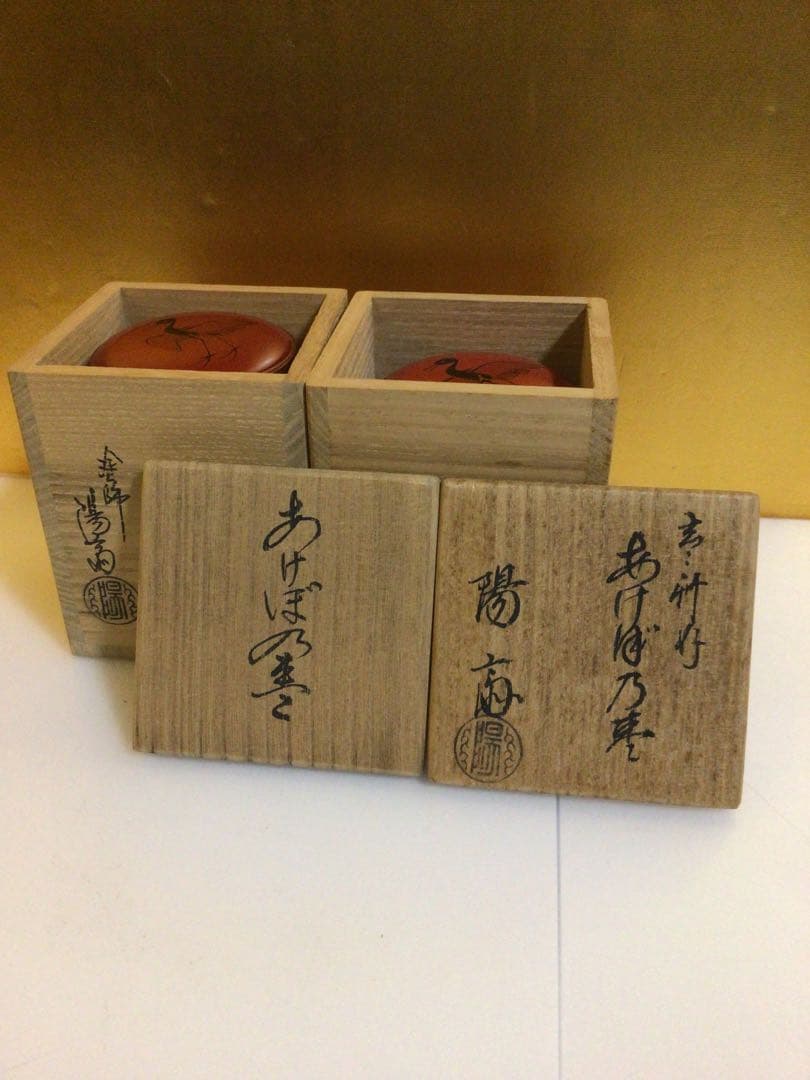 塗師
陽斎
陽
あけぼの棗
玄々斎好
あけぼ乃棗
陽斎
陽